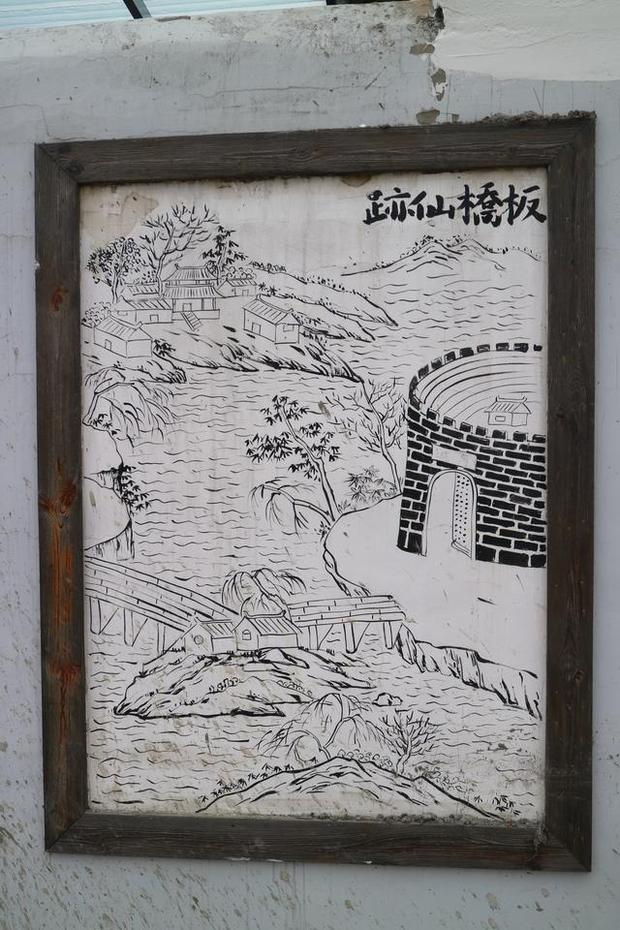 板橋仙跡